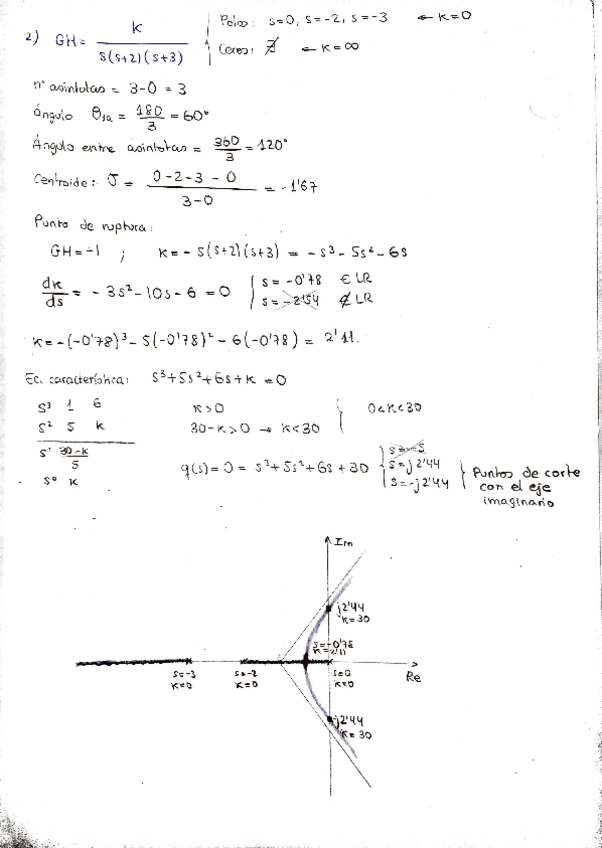 2) GH = K / s(s+2)(s+3) { Polos: s=0, s=-2, s=-3 ← K=0
Ceros: ∄ ← K=∞
nº asíntotas = 3-0 = 3
Ángulo θ1a = 180/3 = 60°
Ángulo entre asíntotas = 360/3 = 120°
Centroide: σ = 0-2-3-0 / 3-0 = -1'67
Punto de ruptura:
GH=-1 ; K = -s(s+2)(s+3) = -s³-5s²-6s
dK/ds = -3s²-10s-6 = 0 { s = -0'78 ∈ LR
s = -2'54 ∉ LR
K = -(-0'78)³-5(-0'78)²-6(-0'78) = 2'11.
Ec. característica: s³+5s²+6s+K = 0
s³ 1 6 K>0 } 0<K<30
s² 5 K 30-K>0 → K<30
s¹ 30-K/5
s⁰ K
q(s)=0 = s³+5s²+6s+30 { s=-5
s=j2'44
s=-j2'44 } Puntos de corte
con el eje
imaginario
Im
j2'44
K=30
s=-0'78
K=2'11
s=-3
K=0
s=-2
K=0
s=0
K=0
Re
-j2'44
K=30